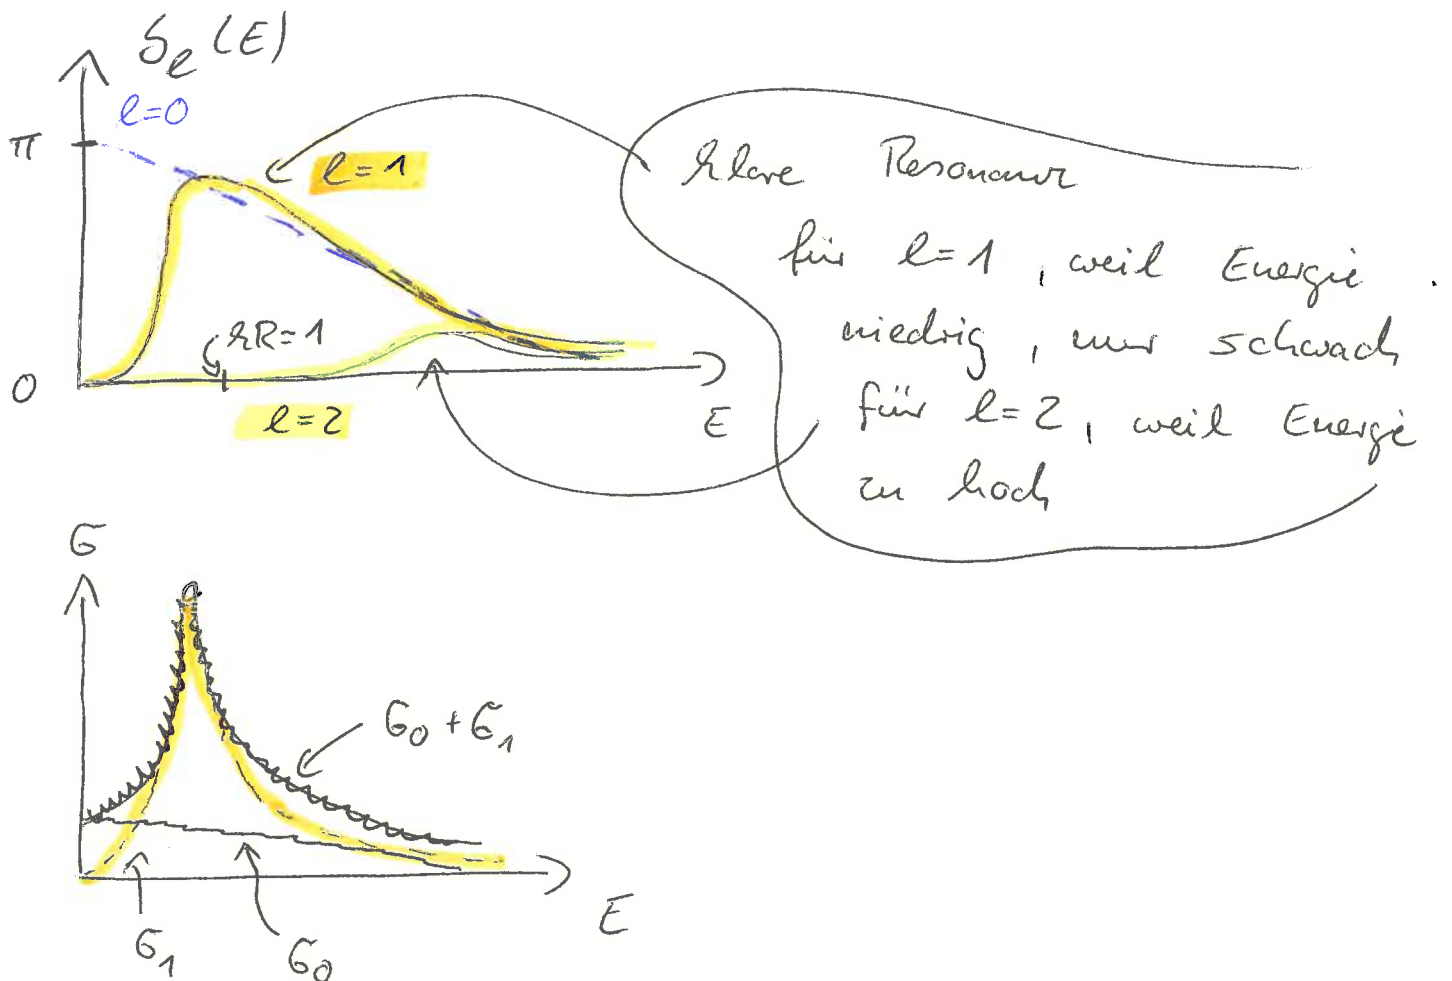 δ_l (E)
l=0
π
l=1
klare Resonanz
für l=1, weil Energie
niedrig, nur schwach
für l=2, weil Energie
zu hoch
kR=1
0
l=2
E
σ
σ₀ + σ₁
E
σ₁
σ₀